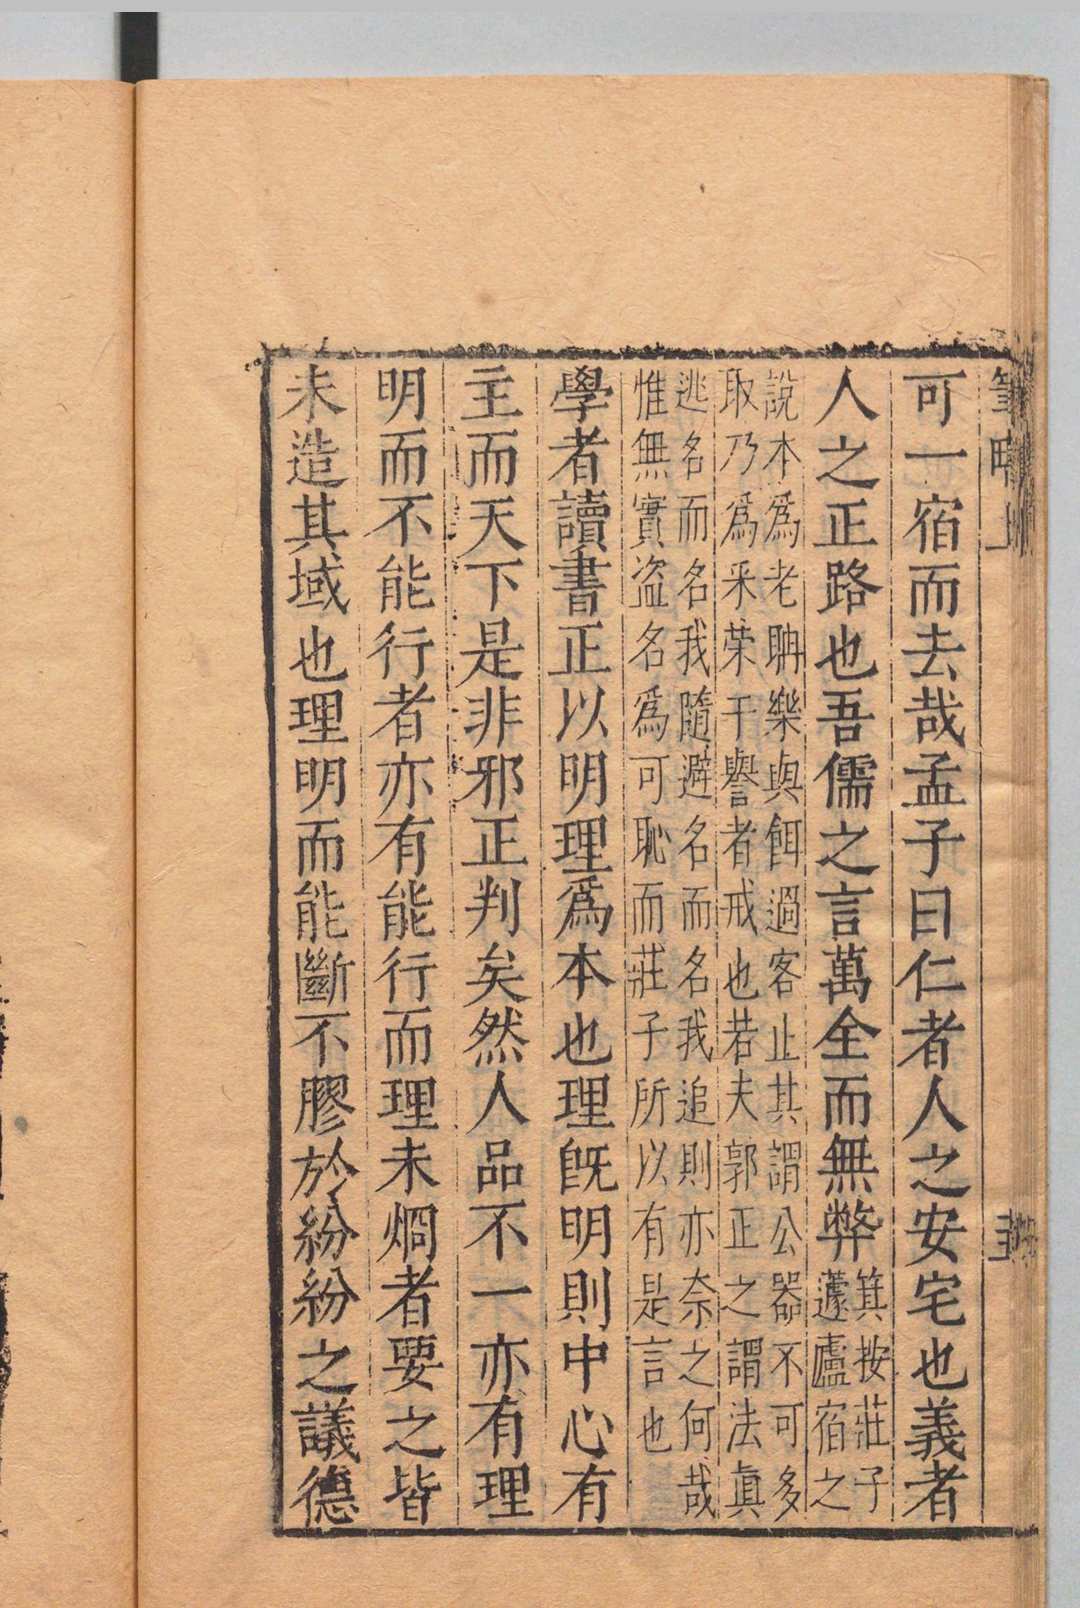 筆疇上
可一宿而去哉孟子曰仁者人之安宅也義者
人之正路也吾儒之言萬全而無弊
箕按莊子
蘧廬宿之
說本爲老聃樂與餌過客止其謂公器不可多
取乃爲釆荣干譽者戒也若夫郭正之謂法眞
逃名而名我隨避名而名我追則亦奈之何哉
惟無實盜名爲可恥而莊子所以有是言也
學者讀書正以明理爲本也理旣明則中心有
主而天下是非邪正判矣然人品不一亦有理
明而不能行者亦有能行而理未烱者要之皆
未造其域也理明而能斷不膠於紛紛之議德